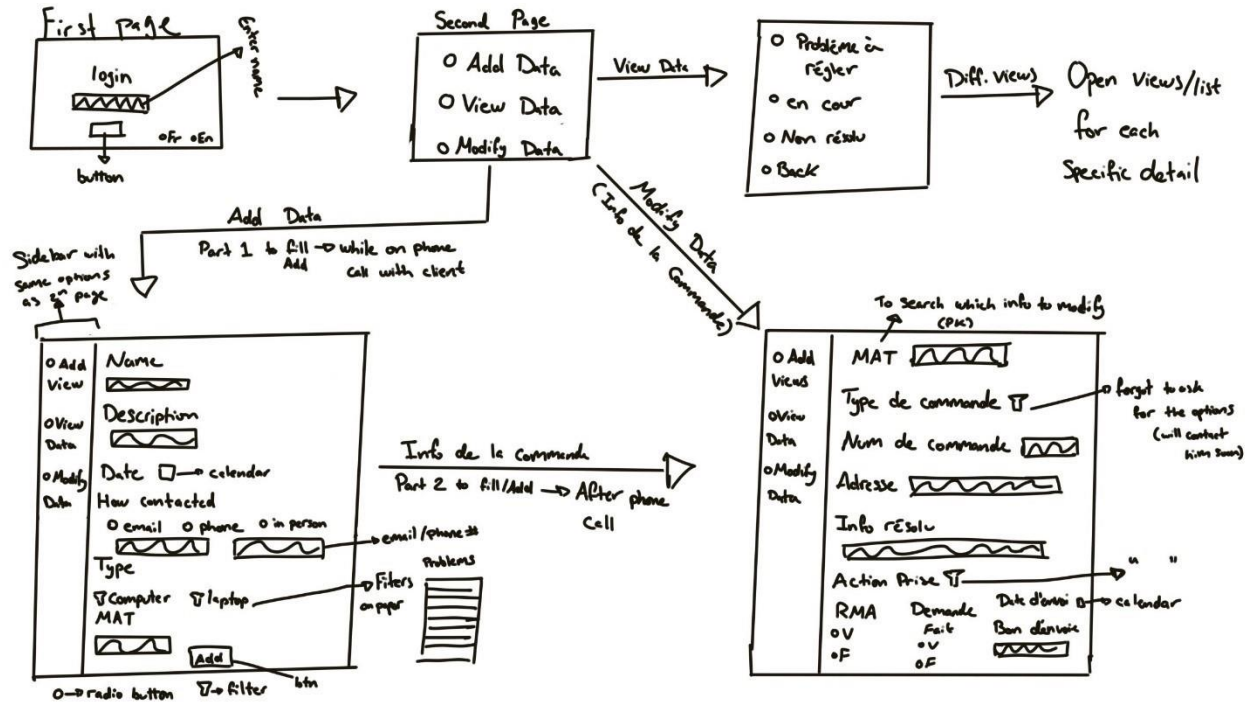 First page
login
Enter name
Fr
En
button
Second Page
Add Data
View Data
Modify Data
View Data
Problème à
régler
en cour
Non résolu
Back
Diff. views
Open views/list
for each
Specific detail
Add Data
Part 1 to fill → while on phone
Add
call with client
Modify Data
(Info de la Commande)
Sidebar with
same options
as 2nd page
Add
View
View
Data
Modify
Data
Name
Description
Date
calendar
How contacted
email
phone
in person
email/phone #
Type
Computer
laptop
Filters
on paper
MAT
Add
btn
Problems
→ radio button
→ filter
Info de la Commande
Part 2 to fill/Add → After phone
Call
To search which info to modify
(PK)
Add
Views
View
Data
Modify
Data
MAT
Type de commande
forgot to ask
for the options
(will contact
him soon)
Num de commande
Adresse
Info résolu
Action Prise
" "
RMA
V
F
Demande
Fait
V
F
Date d'envoi
calendar
Bon d'envoie